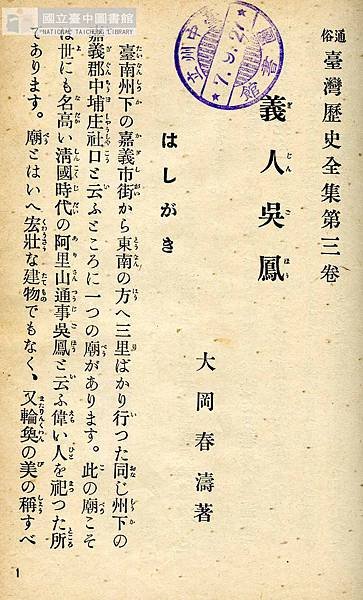 國立臺中圖書館
NATIONAL TAICHUNG LIBRARY
通俗臺灣歷史全集第三卷
義人吳鳳
大岡春濤著
はしがき
臺南州下の嘉義市街から東南の方へ三里ばかり行つた同じ州下の
嘉義郡中埔庄社口と云ふところに一つの廟があります。此の廟こそ
は世にも名高い淸國時代の阿里山通事吳鳳と云ふ偉い人を祀つた所
であります。廟とはいへ宏壯な建物でもなく、又輪奐の美の稱すべ
1